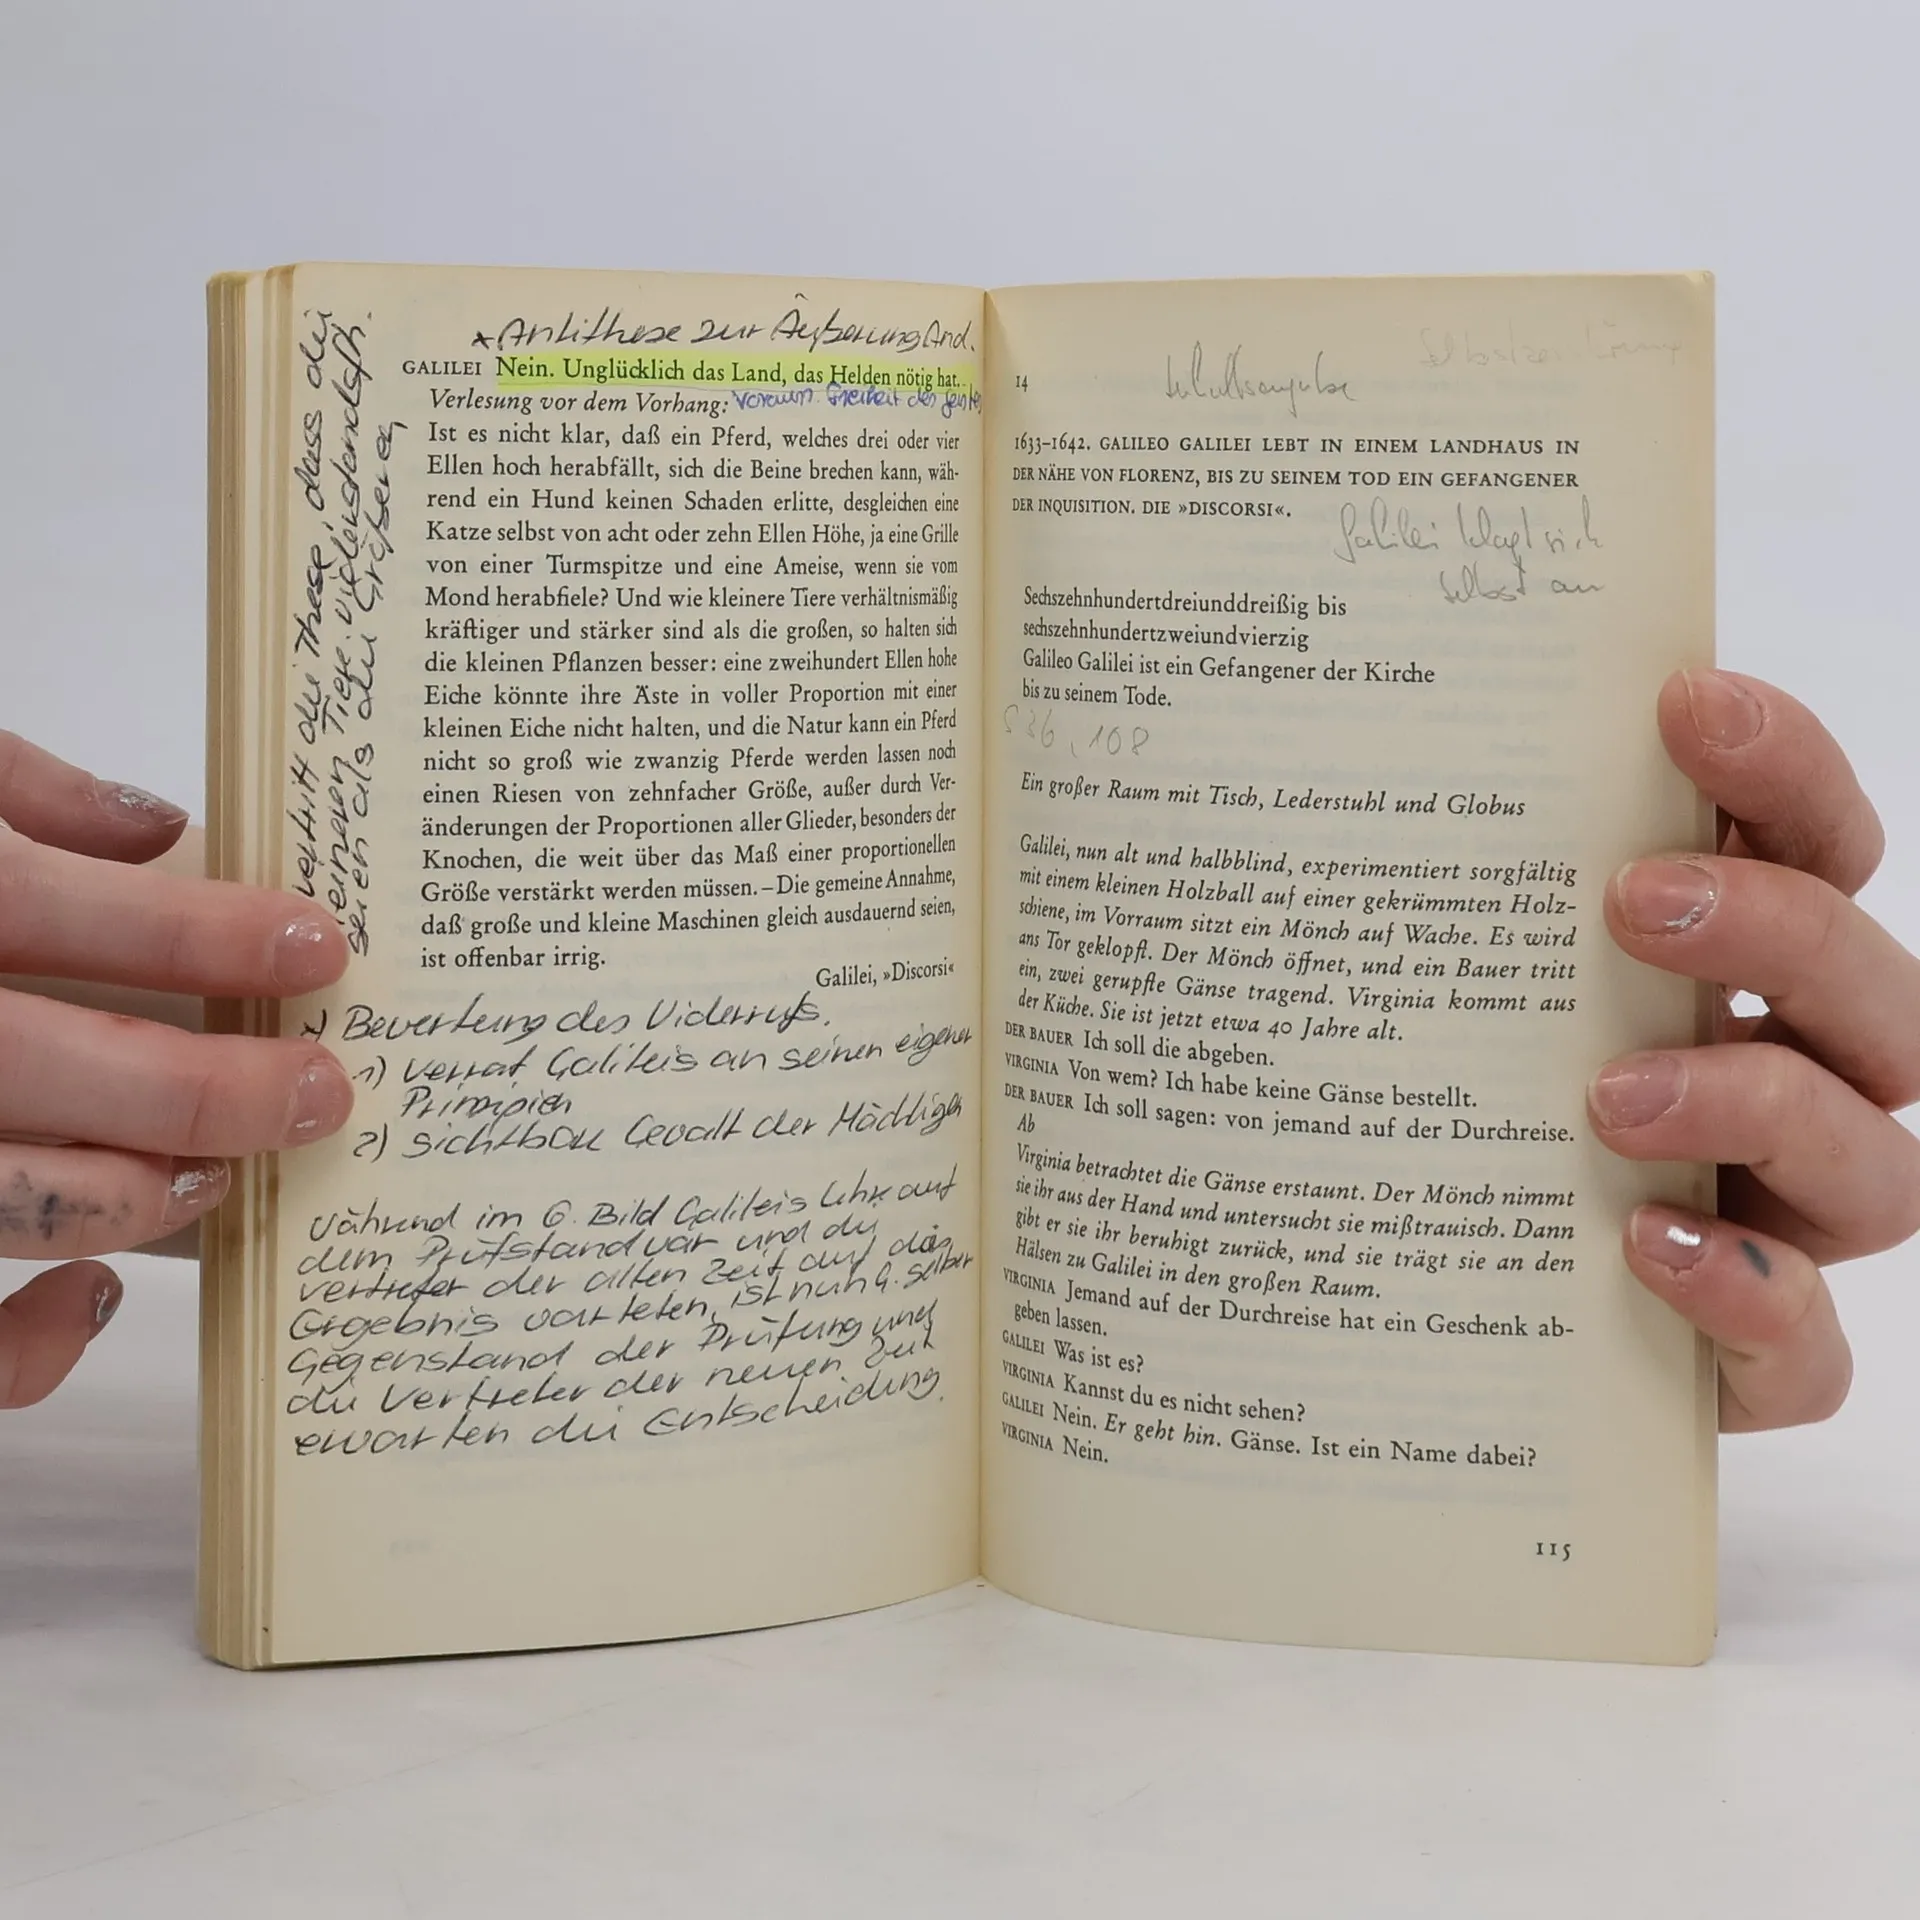 * Antithese zur Äußerung And.
GALILEI Nein. Unglücklich das Land, das Helden nötig hat.
Verlesung vor dem Vorhang:
Freiheit des
Ist es nicht klar, daß ein Pferd, welches drei oder vier
Ellen hoch herabfällt, sich die Beine brechen kann, wäh-
rend ein Hund keinen Schaden erlitte, desgleichen eine
Katze selbst von acht oder zehn Ellen Höhe, ja eine Grille
von einer Turmspitze und eine Ameise, wenn sie vom
Mond herabfiele? Und wie kleinere Tiere verhältnismäßig
kräftiger und stärker sind als die großen, so halten sich
die kleinen Pflanzen besser: eine zweihundert Ellen hohe
Eiche könnte ihre Äste in voller Proportion mit einer
kleinen Eiche nicht halten, und die Natur kann ein Pferd
nicht so groß wie zwanzig Pferde werden lassen noch
einen Riesen von zehnfacher Größe, außer durch Ver-
änderungen der Proportionen aller Glieder, besonders der
Knochen, die weit über das Maß einer proportionellen
Größe verstärkt werden müssen. – Die gemeine Annahme,
daß große und kleine Maschinen gleich ausdauernd seien,
ist offenbar irrig.
Galilei, »Discorsi«
vertritt die These, dass die
kleineren Tiere widerstandsf.
seien als die Größeren
Bewertung des Widerrufs.
1) Verrat Galileis an seinen eigenen
Prinzipien
2) sichtbare Gewalt der Mächtigen
Während im 6. Bild Galileis Lehre auf
dem Prüfstand war und die
Vertreter der alten Zeit auf das
Ergebnis warteten, ist nun G. selber
Gegenstand der Prüfung und
die Vertreter der neuen Zeit
erwarten die Entscheidung.
14
Inhaltsangabe
1633–1642. GALILEO GALILEI LEBT IN EINEM LANDHAUS IN
DER NÄHE VON FLORENZ, BIS ZU SEINEM TOD EIN GEFANGENER
DER INQUISITION. DIE »DISCORSI«.
Galilei klagt sich
selbst an
Sechszehnhundertdreiunddreißig bis
sechszehnhundertzweiundvierzig
Galileo Galilei ist ein Gefangener der Kirche
bis zu seinem Tode.
S 36, 108
Ein großer Raum mit Tisch, Lederstuhl und Globus
Galilei, nun alt und halbblind, experimentiert sorgfältig
mit einem kleinen Holzball auf einer gekrümmten Holz-
schiene, im Vorraum sitzt ein Mönch auf Wache. Es wird
ans Tor geklopft. Der Mönch öffnet, und ein Bauer tritt
ein, zwei gerupfte Gänse tragend. Virginia kommt aus
der Küche. Sie ist jetzt etwa 40 Jahre alt.
DER BAUER Ich soll die abgeben.
VIRGINIA Von wem? Ich habe keine Gänse bestellt.
DER BAUER Ich soll sagen: von jemand auf der Durchreise.
Ab
Virginia betrachtet die Gänse erstaunt. Der Mönch nimmt
sie ihr aus der Hand und untersucht sie mißtrauisch. Dann
gibt er sie ihr beruhigt zurück, und sie trägt sie an den
Hälsen zu Galilei in den großen Raum.
VIRGINIA Jemand auf der Durchreise hat ein Geschenk ab-
geben lassen.
GALILEI Was ist es?
VIRGINIA Kannst du es nicht sehen?
GALILEI Nein. Er geht hin. Gänse. Ist ein Name dabei?
VIRGINIA Nein.
115